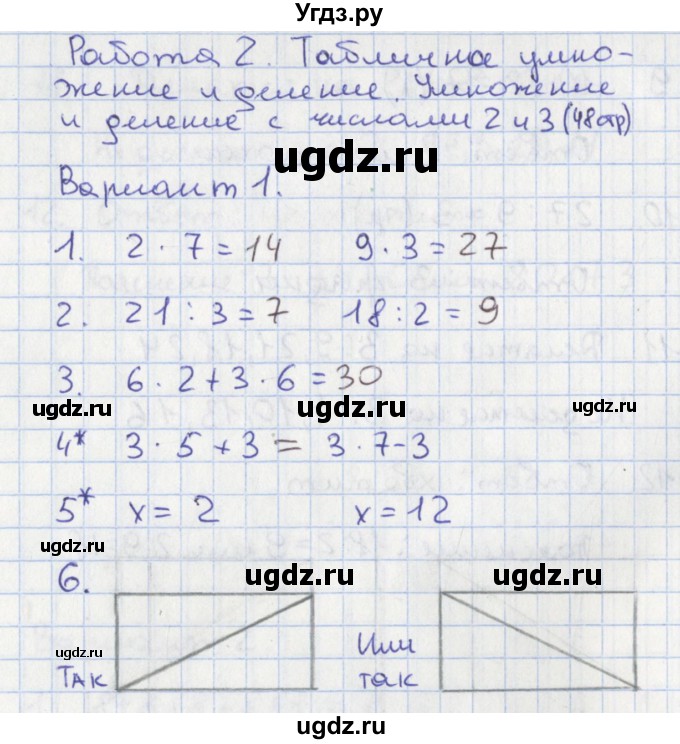 Угдз.ру
Работа 2. Табличное умно-
жение и деление. Умножение
и деление с числами 2 и 3 (48стр)
ugdz.ru
Вариант 1.
1. 2 · 7 = 14 9 · 3 = 27
2. 21 : 3 = 7 18 : 2 = 9
3. 6 · 2 + 3 · 6 = 30
ugdz.ru ugdz.ru ugdz.ru
4* 3 · 5 + 3 = 3 · 7 - 3
5* x = 2 x = 12
ugdz.ru
6. ugdz.ru ugdz.ru
ugdz.ru
Так Или
так
ugdz.ru